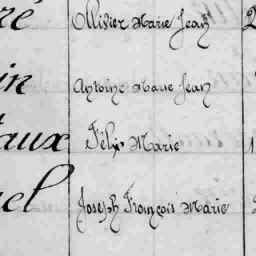 ré Ollivier Marie Jean 2
in Antoine Marie Jean
taux Félix Marie 1
el Joseph François Marie